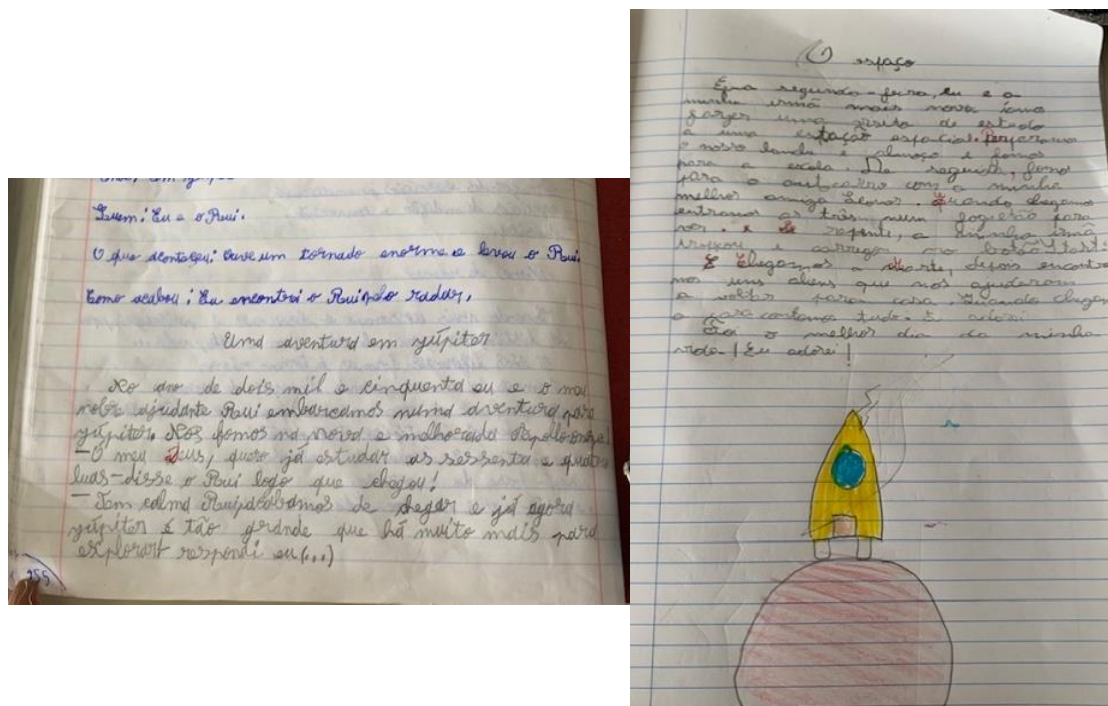 Quem: Eu e o Rui.
O que aconteçeu: Ouve um tornado enorme e levou o Rui.
Como acabou: Eu encontrei o Rui pelo radar.
Uma aventura em yúpiter
No ano de dois mil e cinquenta eu e o meu
nobre ajudante Rui embarcamos numa aventura para
yúpiter. Nos fomos na nova e melhorada Apollo onze!
-Ó meu Deus, quero já estudar as sessenta e quatro
luas-disse o Rui logo que chegou!
-Tem calma Rui, acabamos de chegar e já agora
yúpiter é tão grande que há muito mais para
explorar respondi eu(...)
155
O espaço
Era segunda-feira, eu e a
minha irmã mais nova íamos
fazer uma visita de estudo
a uma estação espacial. Preparamos
o nosso lanche e almoço e fomos
para a escola. De seguida, fomos
para o autocarro com a minha
melhor amiga Quando chegamos
entramos as três num foguetão para
ver. De repente, a minha irmã
tropeçou e carregou no botão Start.
Chegamos a Marte, depois encontra
mos uns aliens que nos ajudaram
a voltar para casa. Quando chegam
o para contamos tudo. E adorei
Foi o melhor dia da minha
vida! Eu adorei!